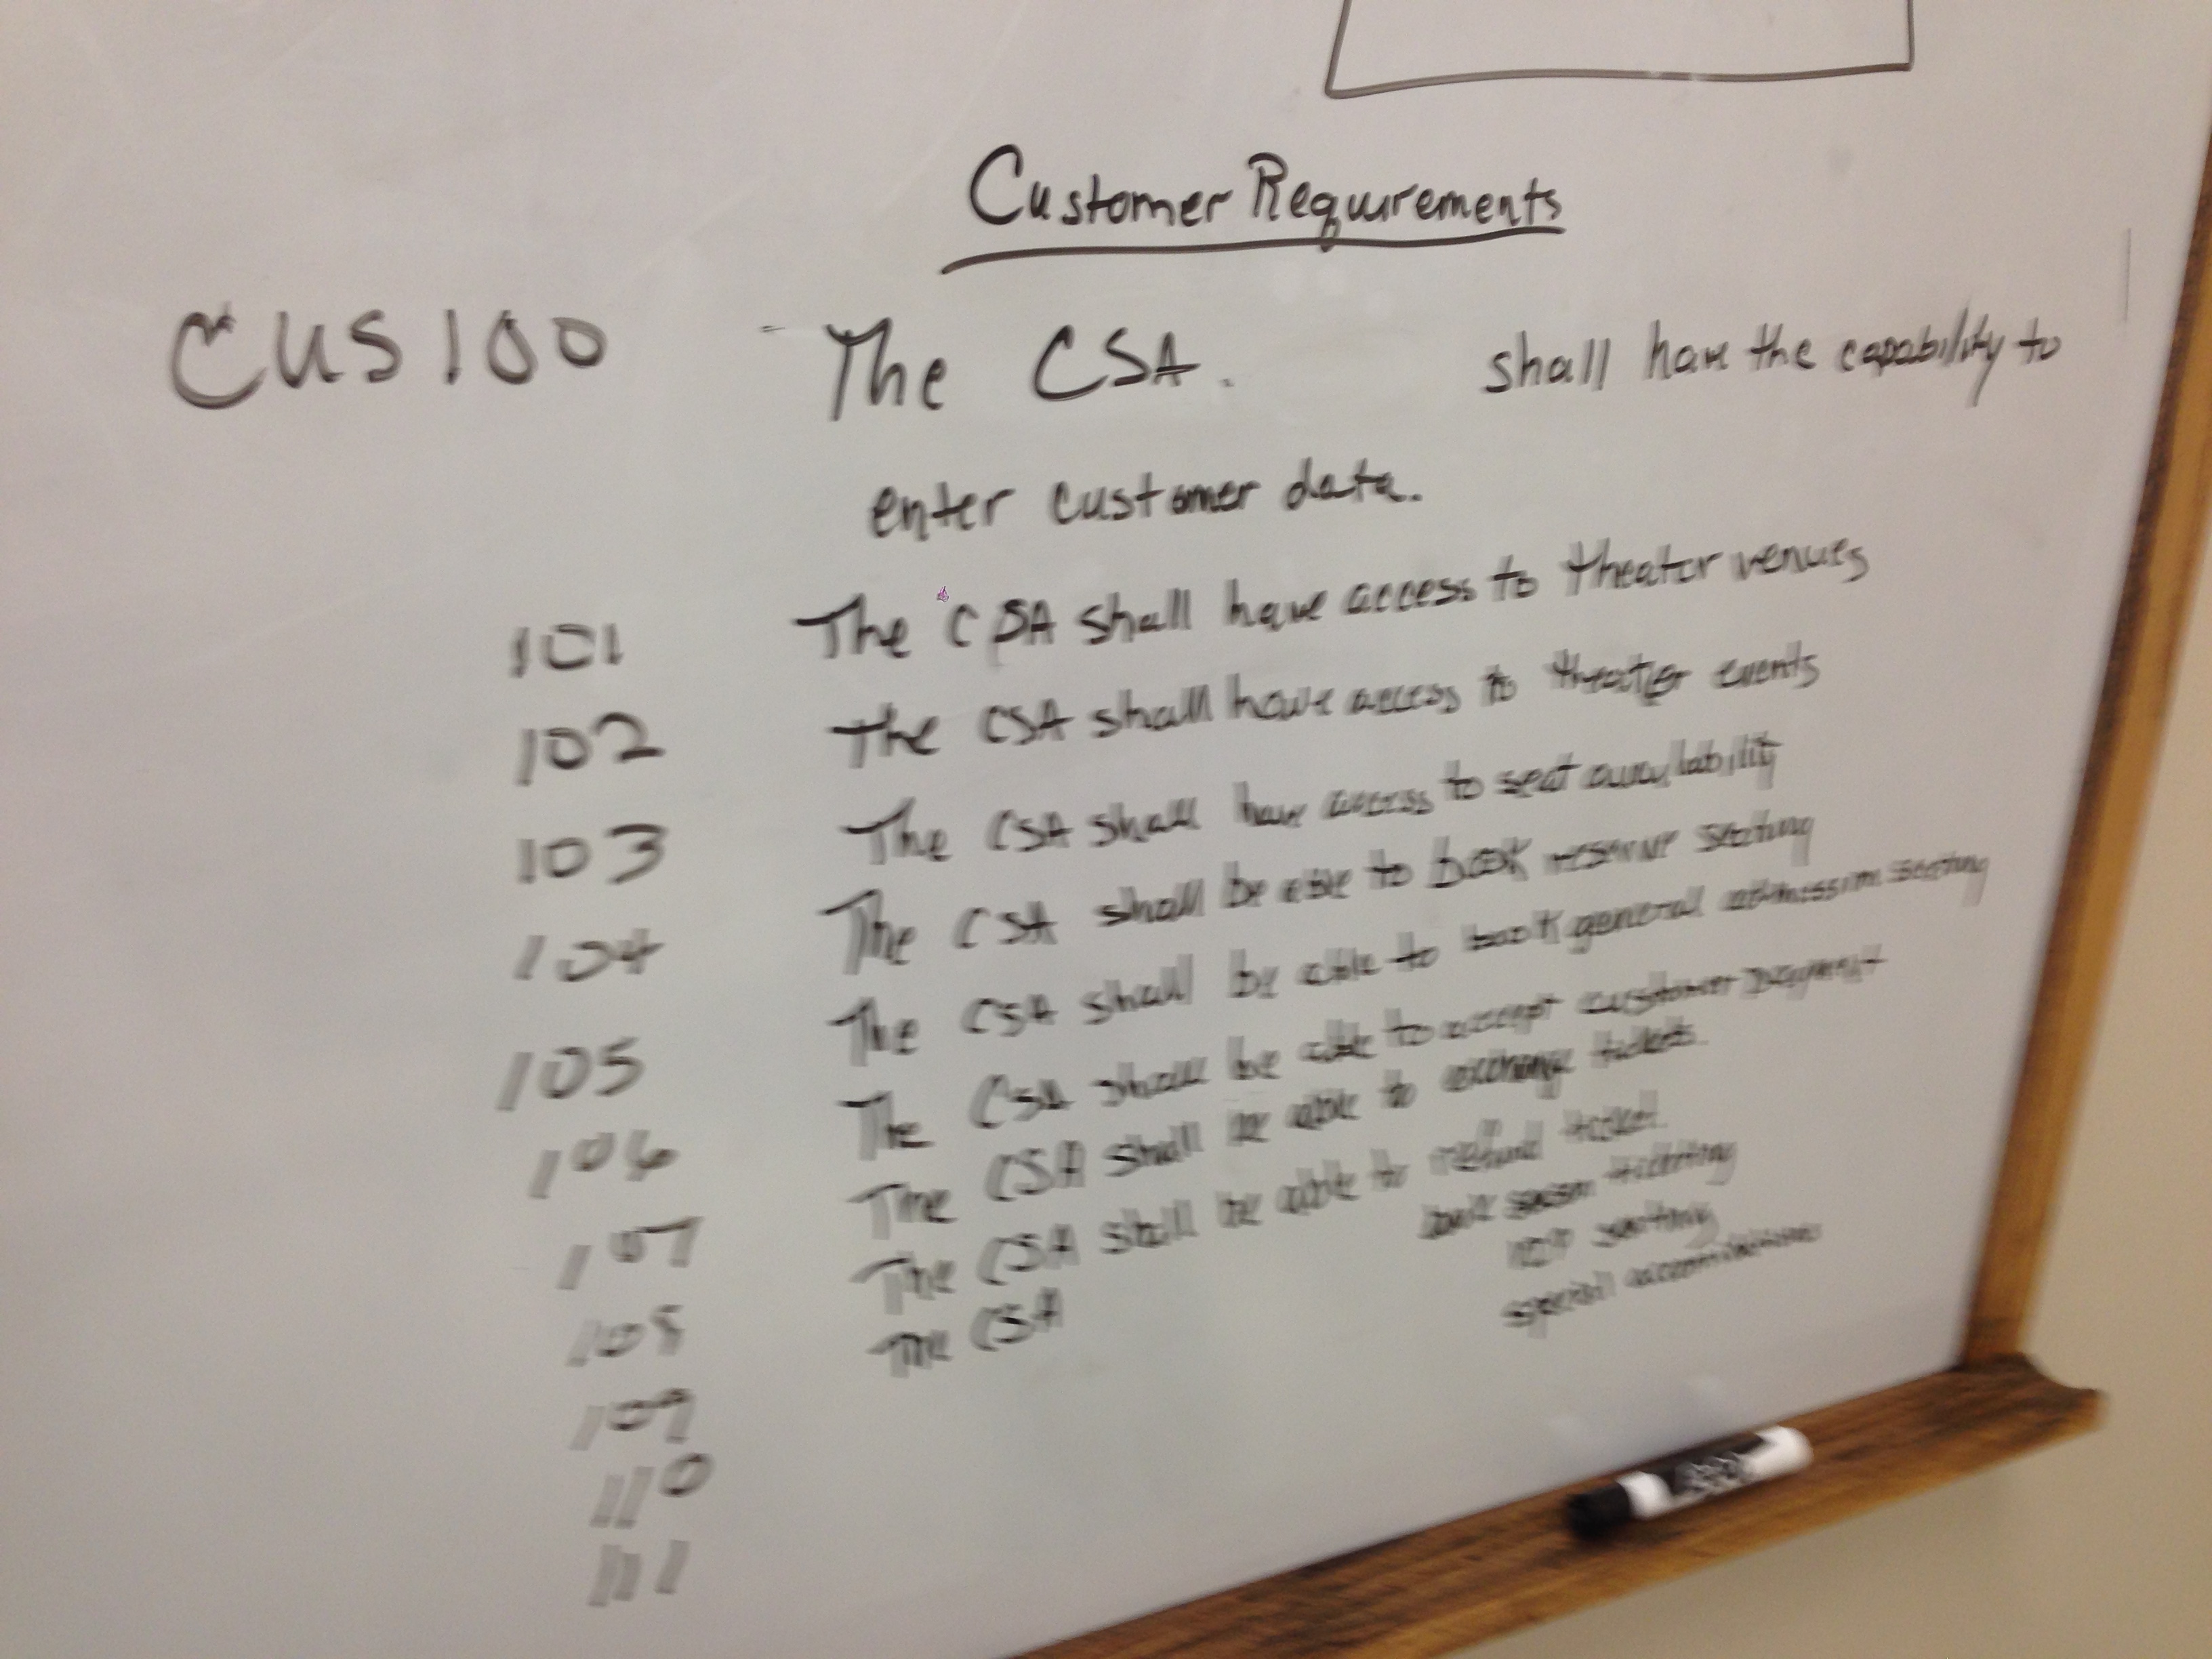 Customer Requirements
CUS100 The CSA. shall have the capability to
enter customer data.
101 The CSA shall have access to theater venues
102 The CSA shall have access to theater events
103 The CSA shall have access to seat availability
104 The CSA shall be able to book reserve seating
105 The CSA shall be able to book general admission seating
106 The CSA shall be able to accept customer payment
107 The CSA shall be able to exchange tickets.
108 The CSA shall be able to refund ticket.
109 The CSA book season ticketing
110 seating
111 special